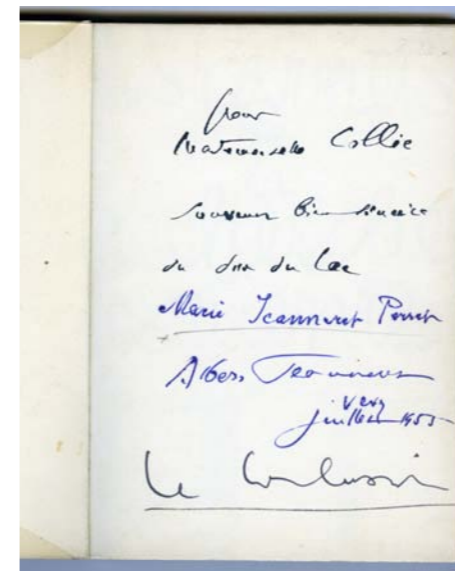 pour
Mademoiselle Collée
Souvenir bien sincère
du du Lac
Marie Jeanneret Perret
Albert Jeanneret
Vevey
juillet 1955
Le Corbusier